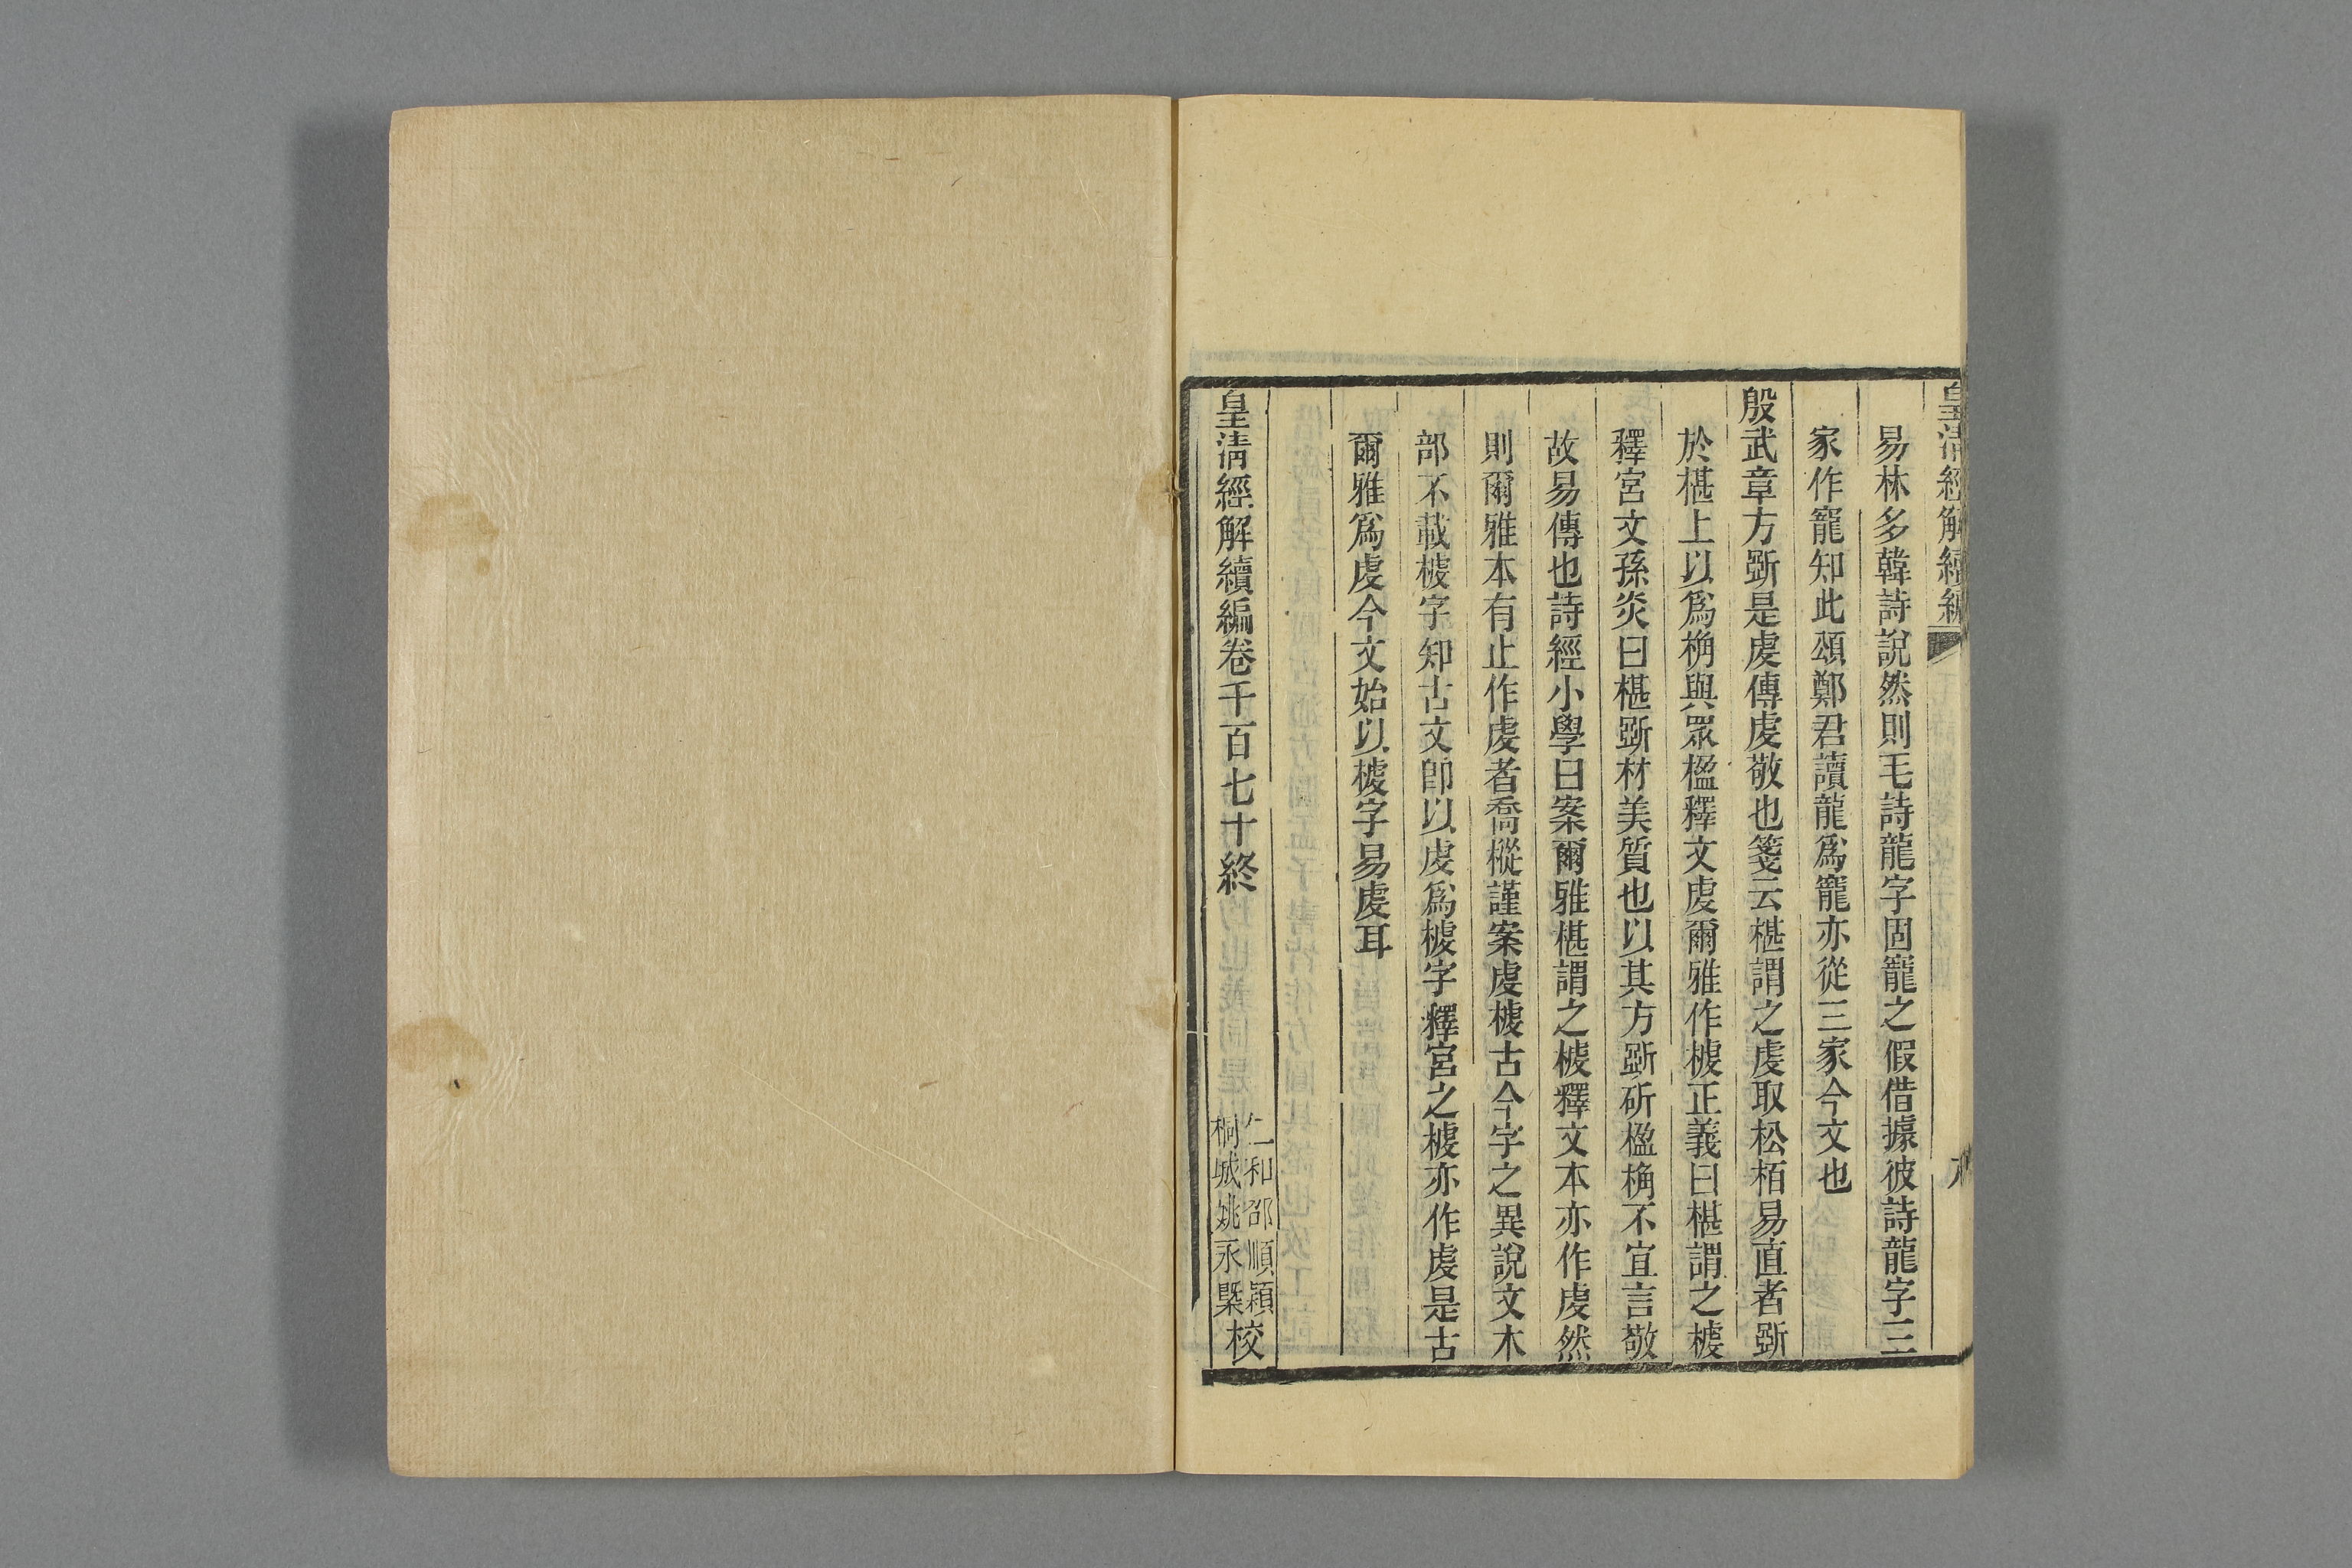 皇清經解續編
易林多韓詩說然則毛詩龍字固寵之假借據彼詩龍字三
家作寵知此頌鄭君讀龍爲寵亦從三家今文也
殷武章方斲是虔傳虔敬也箋云椹謂之虔取松栢易直者斲
於椹上以爲桷與眾楹釋文虔爾雅作榩正義曰椹謂之榩
釋宮文孫炎曰椹斲材美質也以其方斲斫楹桷不宜言敬
故易傳也詩經小學曰案爾雅椹謂之榩釋文本亦作虔然
則爾雅本有止作虔者喬樅謹案虔榩古今字之異說文木
部不載榩字知古文卽以虔爲榩字釋宮之榩亦作虔是古
爾雅爲虔今文始以榩字易虔耳
皇清經解續編卷千一百七十終
仁和邵順穎
桐城姚永檃校